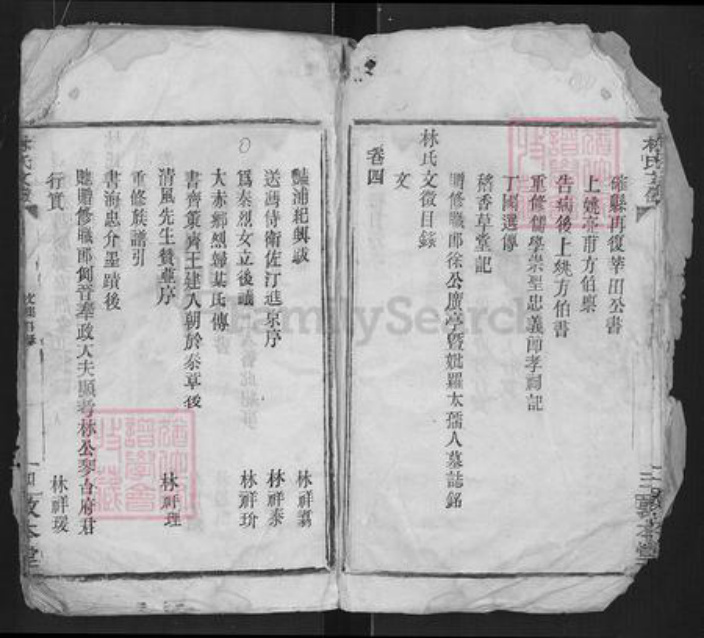 確縣再復莘田公書
上姚亦甫方伯稟
告病後上姚方伯書
重修儒學崇聖忠義節孝祠記
丁國選傳
稽香草堂記
贈修職郎徐公廣亭暨妣羅太孺人墓誌銘
林氏文徵目錄
文
卷四
豔浦紀輿誠 林祥
送馮侍衛佐汀進京序 林祥泰
為秦烈女立後議 林祥玠
大赤鄉烈婦某氏傳
書齊策齊王建入朝於秦章後
清風先生贊華序 林祥理
重修族譜引
書海忠介墨蹟後
貤贈修職郎例晉奉政大夫顯考林公琴台府君
行實 林祥瑗
林氏文徵
敦本堂
FamilySearch